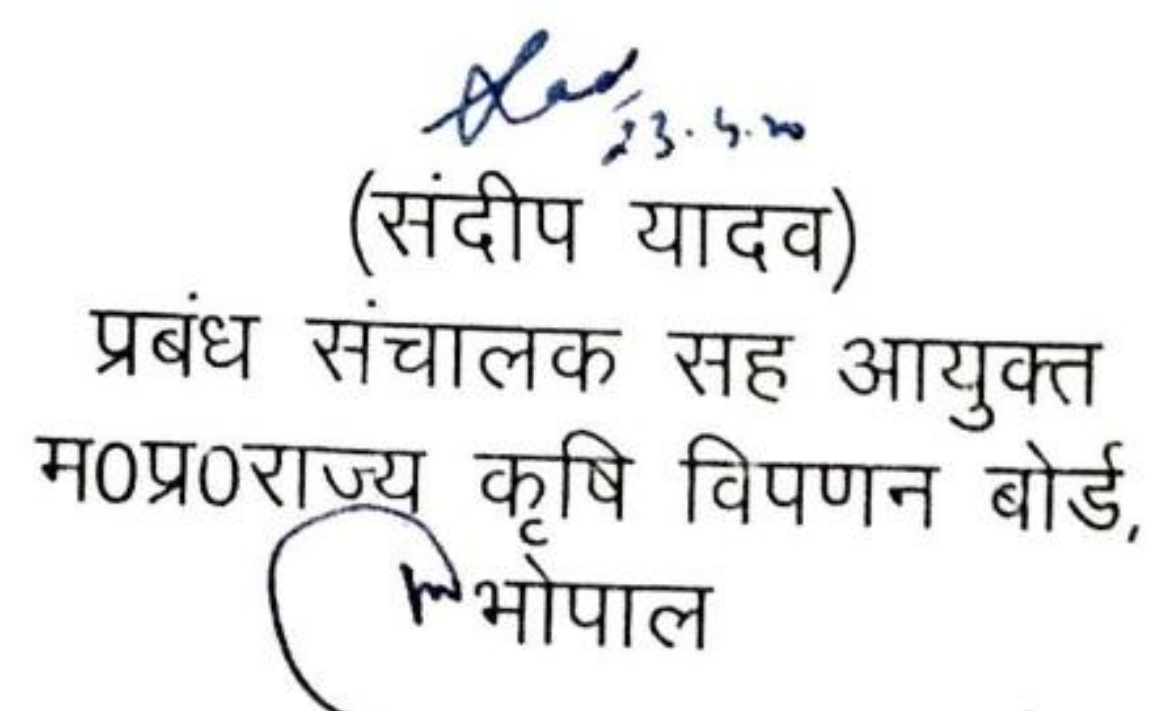 23.5.20
(संदीप यादव)
प्रबंध संचालक सह आयुक्त
म0प्र0राज्य कृषि विपणन बोर्ड,
भोपाल